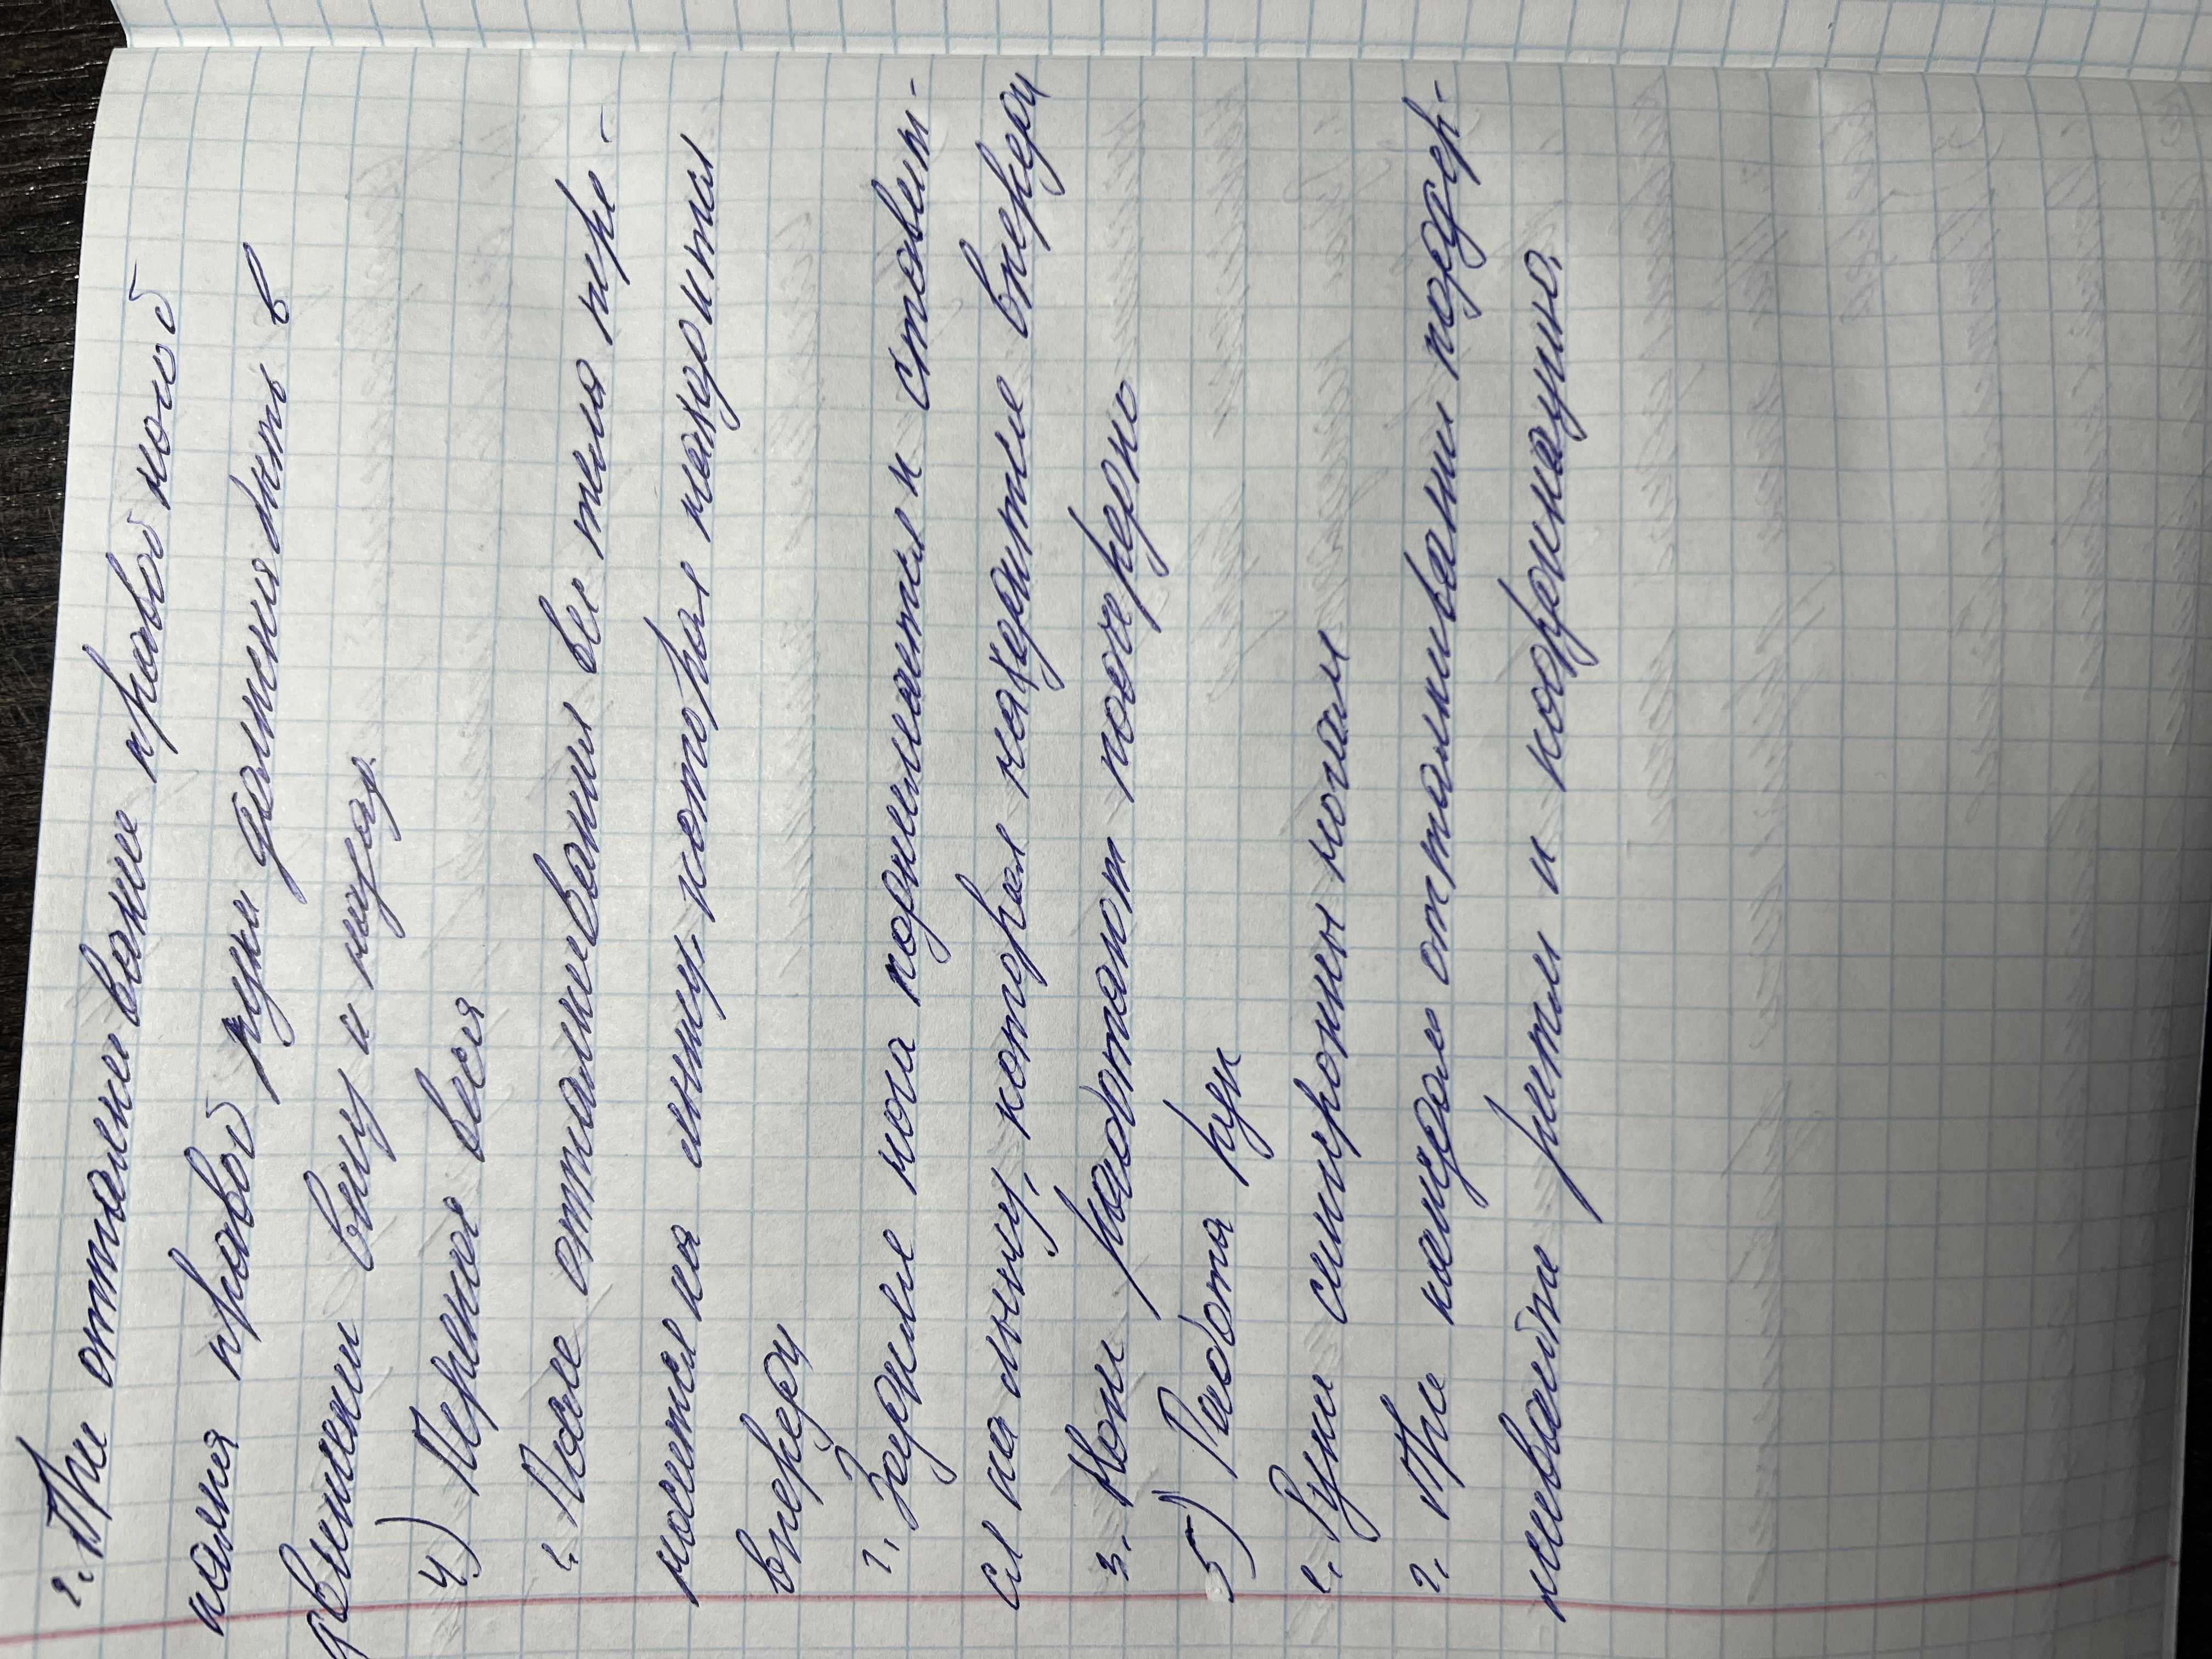 2. При отталкивание правой ногой
палка правой руки должна быть в
движении вниз и назад.
4) Перенос веса
1. После отталкивания вес тела пере-
носится на лыжу, которая находится
впереди
2. Задняя нога поднимается и ставит-
ся на лыжу, которая находится впереди
3. Ноги работают поочерёдно
5) Работа рук
1. Руки синхронны ногам
2. При каждом отталкивании поддер-
живайте ритм и координацию.